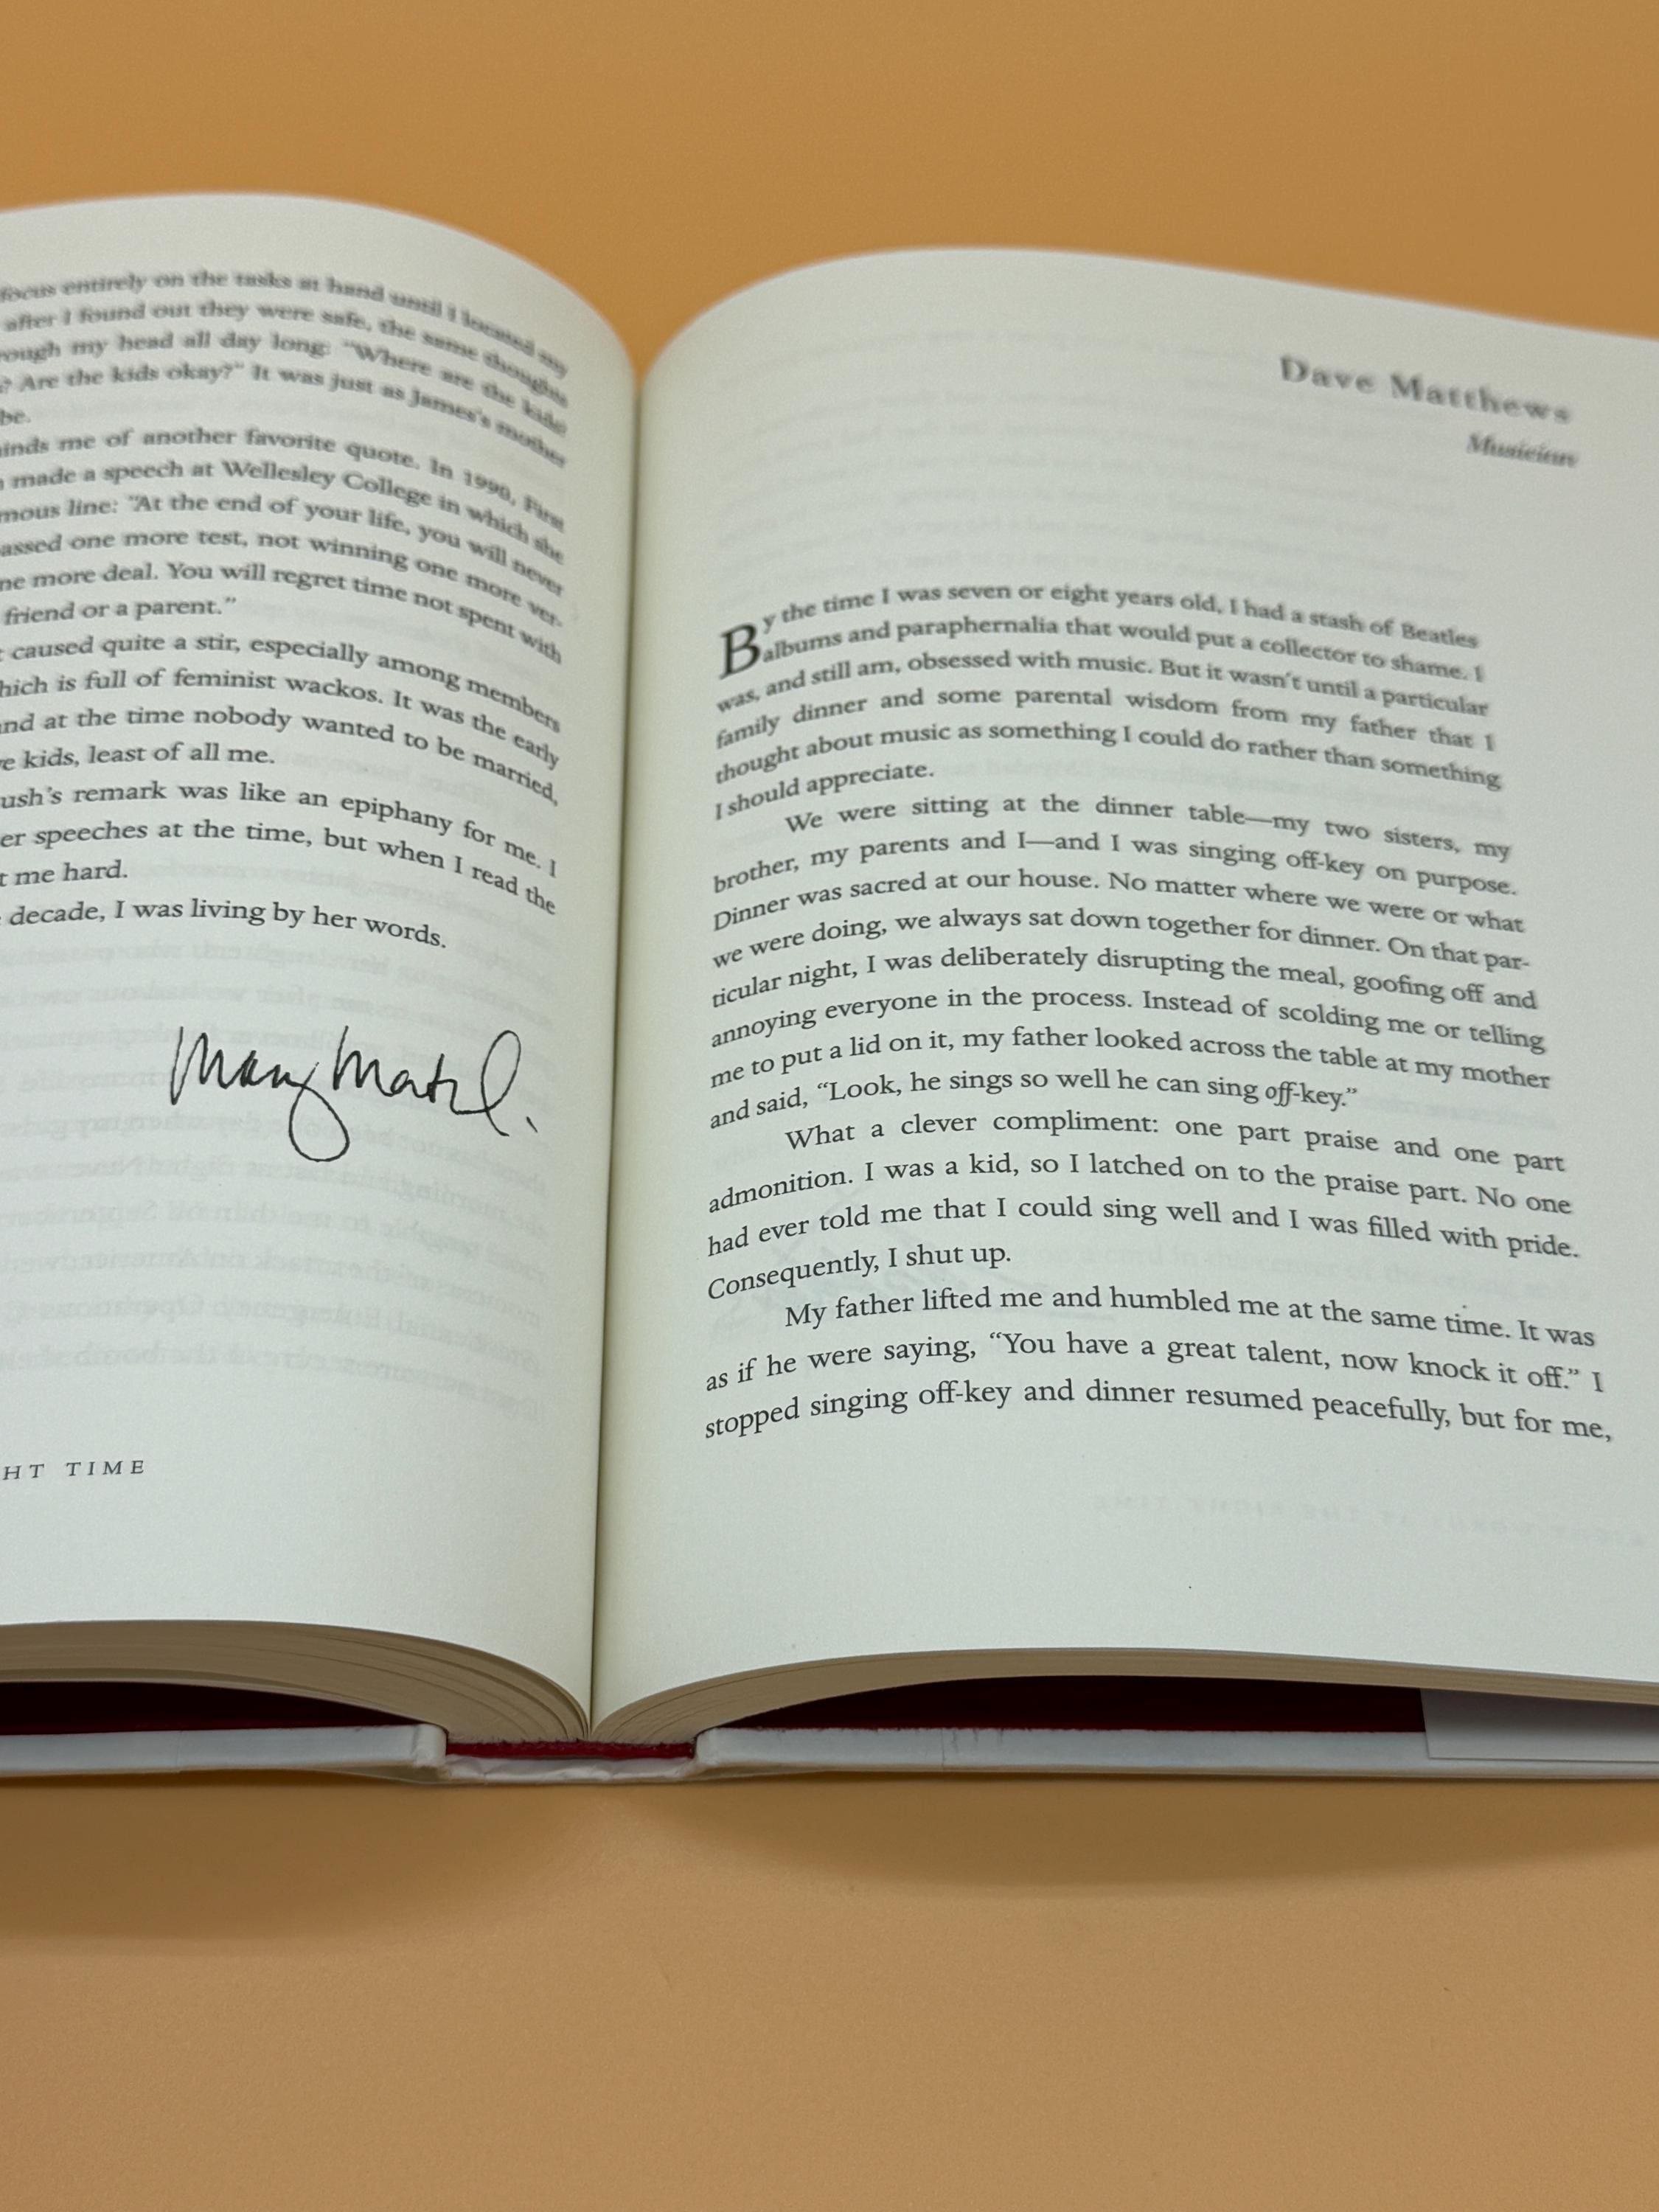 focus entirely on the tasks at hand until I located my
after I found out they were safe, the same thoughts
ough my head all day long: “Where are the kids?
? Are the kids okay?” It was just as James’s mother
be.
inds me of another favorite quote. In 1990, First
made a speech at Wellesley College in which she
mous line: “At the end of your life, you will never
assed one more test, not winning one more ver-
ne more deal. You will regret time not spent with
friend or a parent.”
caused quite a stir, especially among members
hich is full of feminist wackos. It was the early
nd at the time nobody wanted to be married,
e kids, least of all me.
ush’s remark was like an epiphany for me. I
er speeches at the time, but when I read the
t me hard.
decade, I was living by her words.
Mary Matal.
HT TIME
Dave Matthews
Musician
By the time I was seven or eight years old, I had a stash of Beatles
albums and paraphernalia that would put a collector to shame. I
was, and still am, obsessed with music. But it wasn’t until a particular
family dinner and some parental wisdom from my father that I
thought about music as something I could do rather than something
I should appreciate.
We were sitting at the dinner table—my two sisters, my
brother, my parents and I—and I was singing off-key on purpose.
Dinner was sacred at our house. No matter where we were or what
we were doing, we always sat down together for dinner. On that par-
ticular night, I was deliberately disrupting the meal, goofing off and
annoying everyone in the process. Instead of scolding me or telling
me to put a lid on it, my father looked across the table at my mother
and said, “Look, he sings so well he can sing off-key.”
What a clever compliment: one part praise and one part
admonition. I was a kid, so I latched on to the praise part. No one
had ever told me that I could sing well and I was filled with pride.
Consequently, I shut up.
My father lifted me and humbled me at the same time. It was
as if he were saying, “You have a great talent, now knock it off.” I
stopped singing off-key and dinner resumed peacefully, but for me,